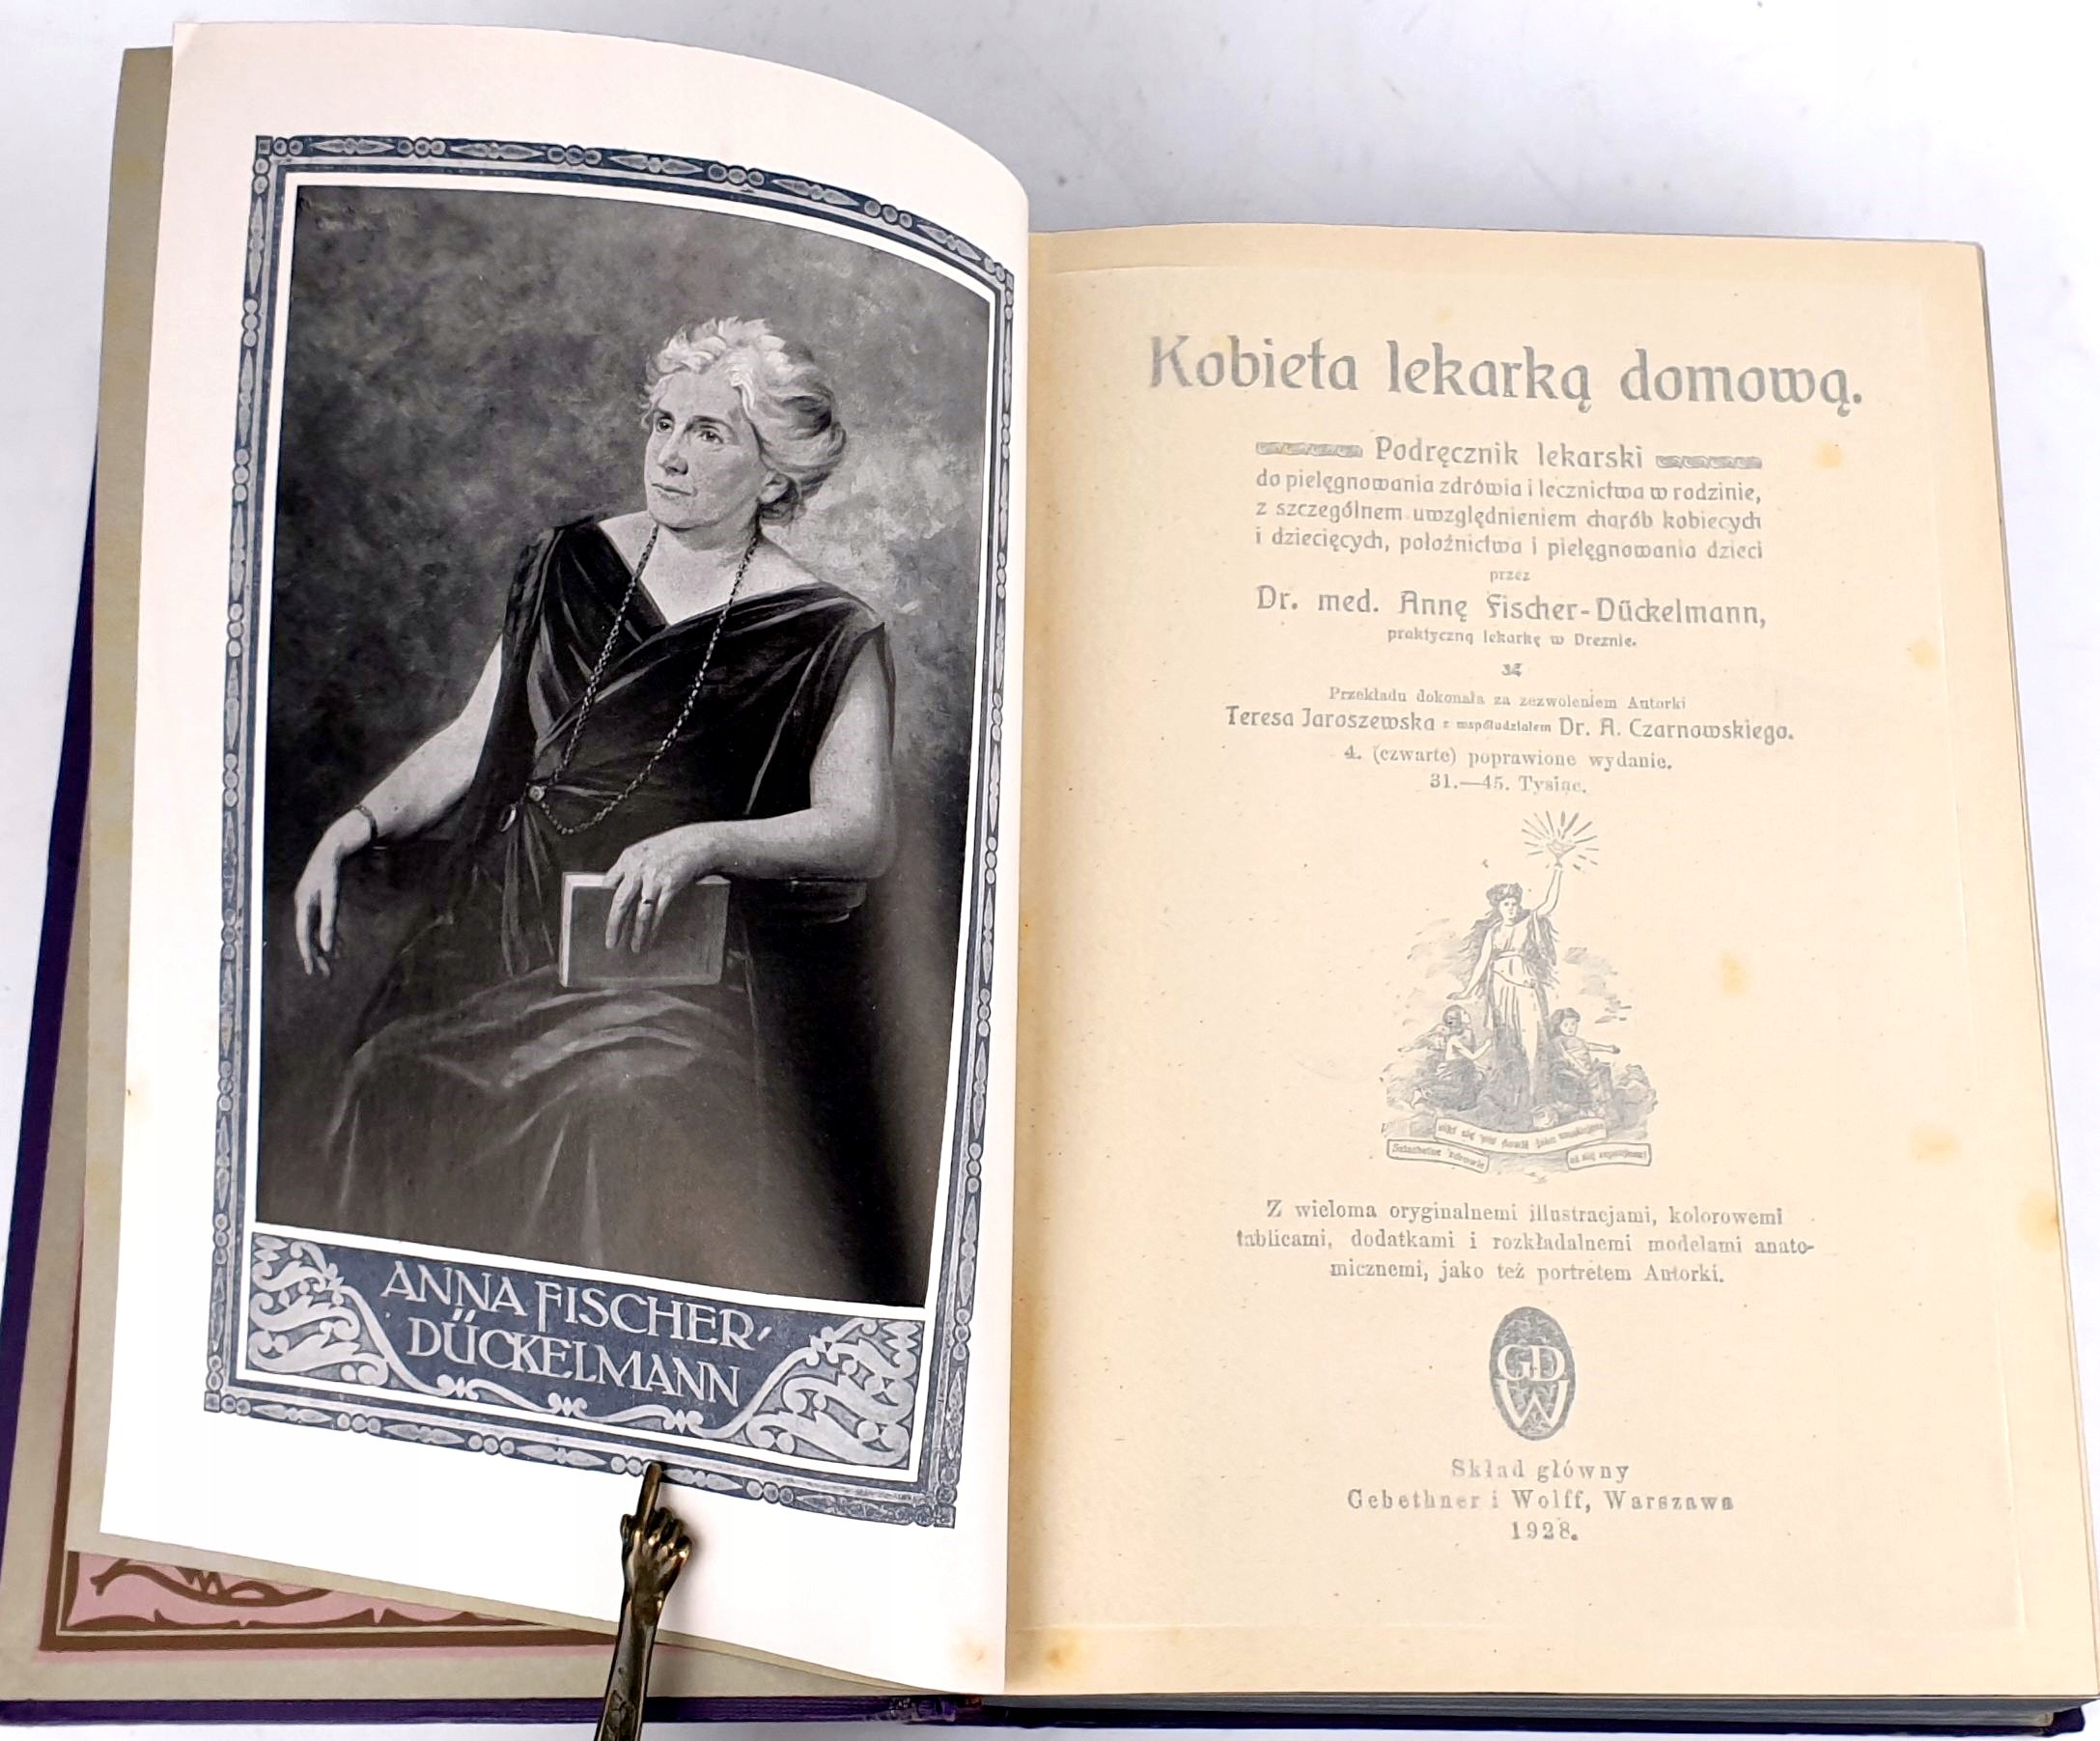 ANNA FISCHER-
DÜCKELMANN
Kobieta lekarką domową.
Podręcznik lekarski
do pielęgnowania zdrówia i lecznictwa w rodzinie,
z szczególnem uwzględnieniem chorób kobiecych
i dziecięcych, położnictwa i pielęgnowania dzieci
przez
Dr. med. Annę Fischer-Dückelmann,
praktyczną lekarkę w Dreznie.
Przekładu dokonała za zezwoleniem Autorki
Teresa Jaroszewska z współudziałem Dr. A. Czarnowskiego.
4. (czwarte) poprawione wydanie.
31.—45. Tysiąc.
Z wieloma oryginalnemi illustracjami, kolorowemi
tablicami, dodatkami i rozkładalnemi modelami anato-
micznemi, jako też portretem Autorki.
GD
W
Skład główny
Gebethner i Wolff, Warszawa
1928.